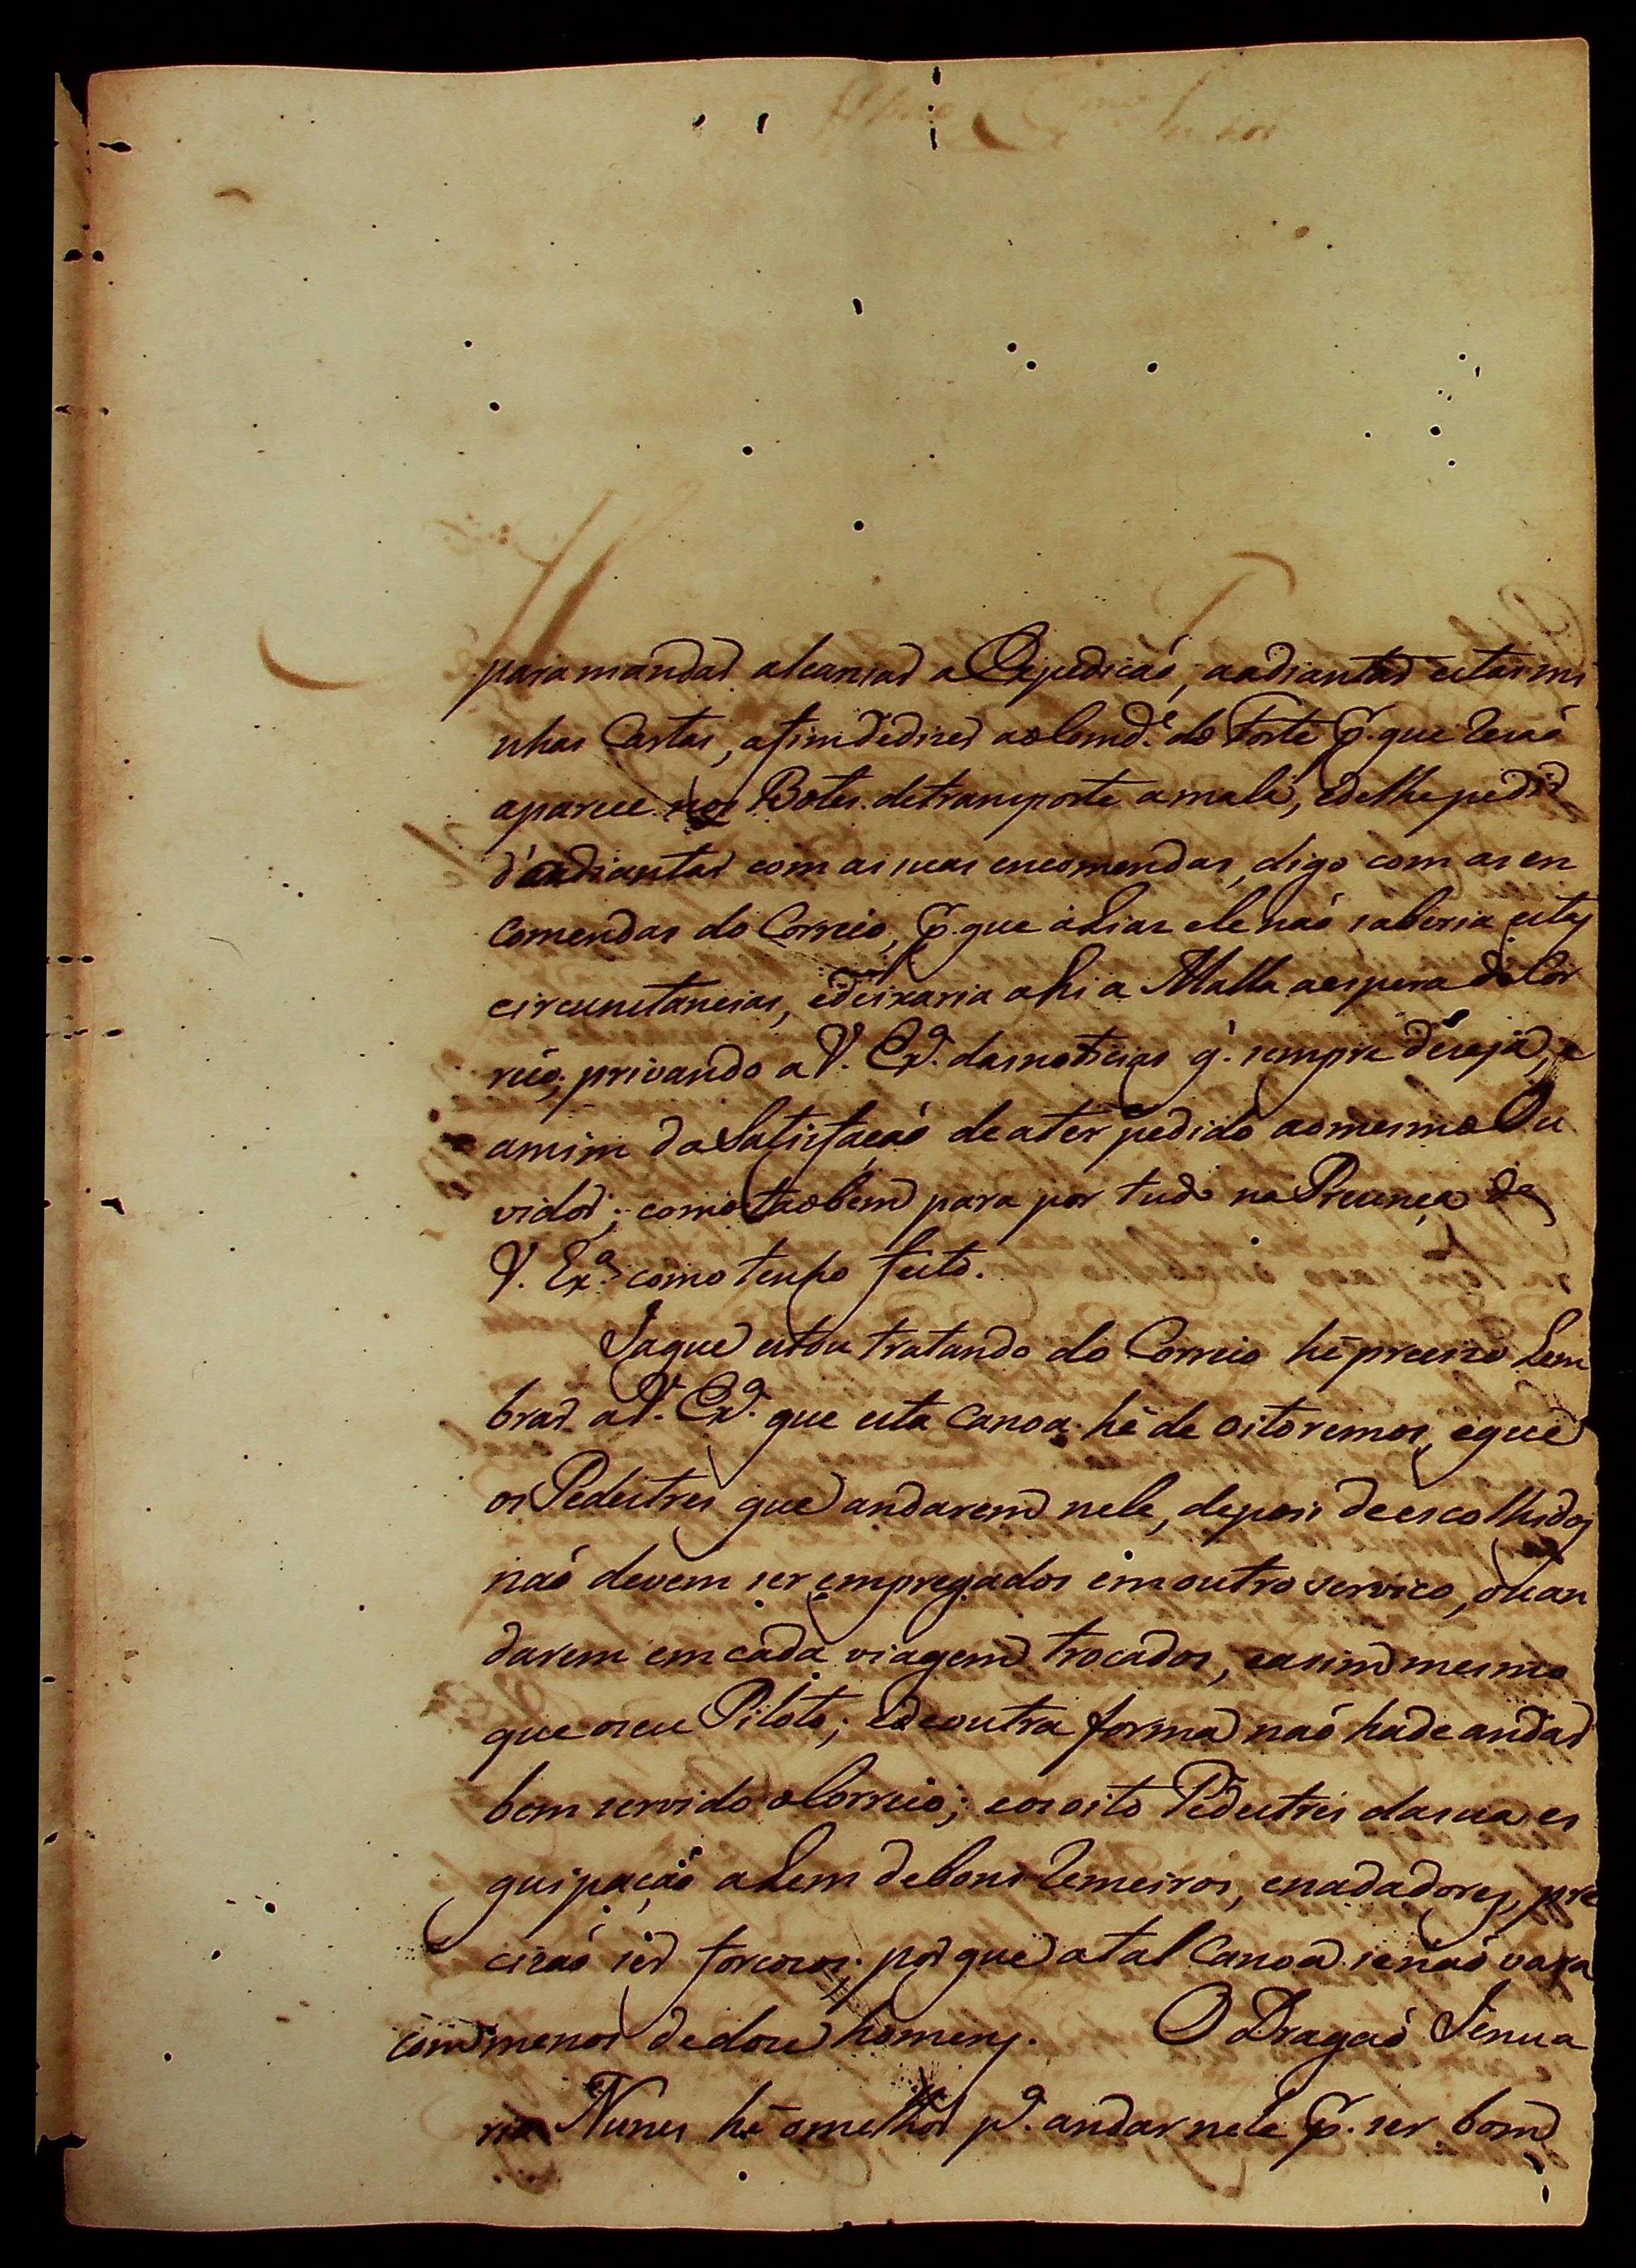 para mandar alcansar a Expedicaõ, a adiantar estas mi
nhas Cartas, afim de dizer ao Comd.e do Forte p.r que rezaõ
aparece nos Botes de transporte a mala, e de lhe pedir
d'adiantar com as suas encomendas, digo com as en
comendas do Correio, p.r que aliaz ele naõ saberia estas
circunstancias, e deixaria ahi a Malla a espera do Cor
reio, privando a V. Ex.a das noticias q. sempre deseja, e
a mim da Satisfaçaõ de a ter pedido ao mesmo Ou
vidor; como taobem para por tudo na Prezença de
V. Ex.a como tenho feito.
Ja que estou tratando do Correio hé precizo Lem
brar a V. Ex.a que esta canoa hé de oito remos, e que
os Pedestres que andarem nele, depois de escolhidos
naõ devem ser empregados em outro serviço, ou an
darem em cada viagem trocados, e asim mesmo
que o seu Piloto; e de outra forma naõ hade andar
bem servido o Correio; e os oito Pedestres da sua es
quipaçaõ alem de bons Remeiros, e nadadores, pre
cizaõ ser forcozos; por que a tal Canoa se naõ vara
com menos de doze homens. O Dragaõ Jenua
rio Nunes hé o melhor p.a andar nele p.r ser bom